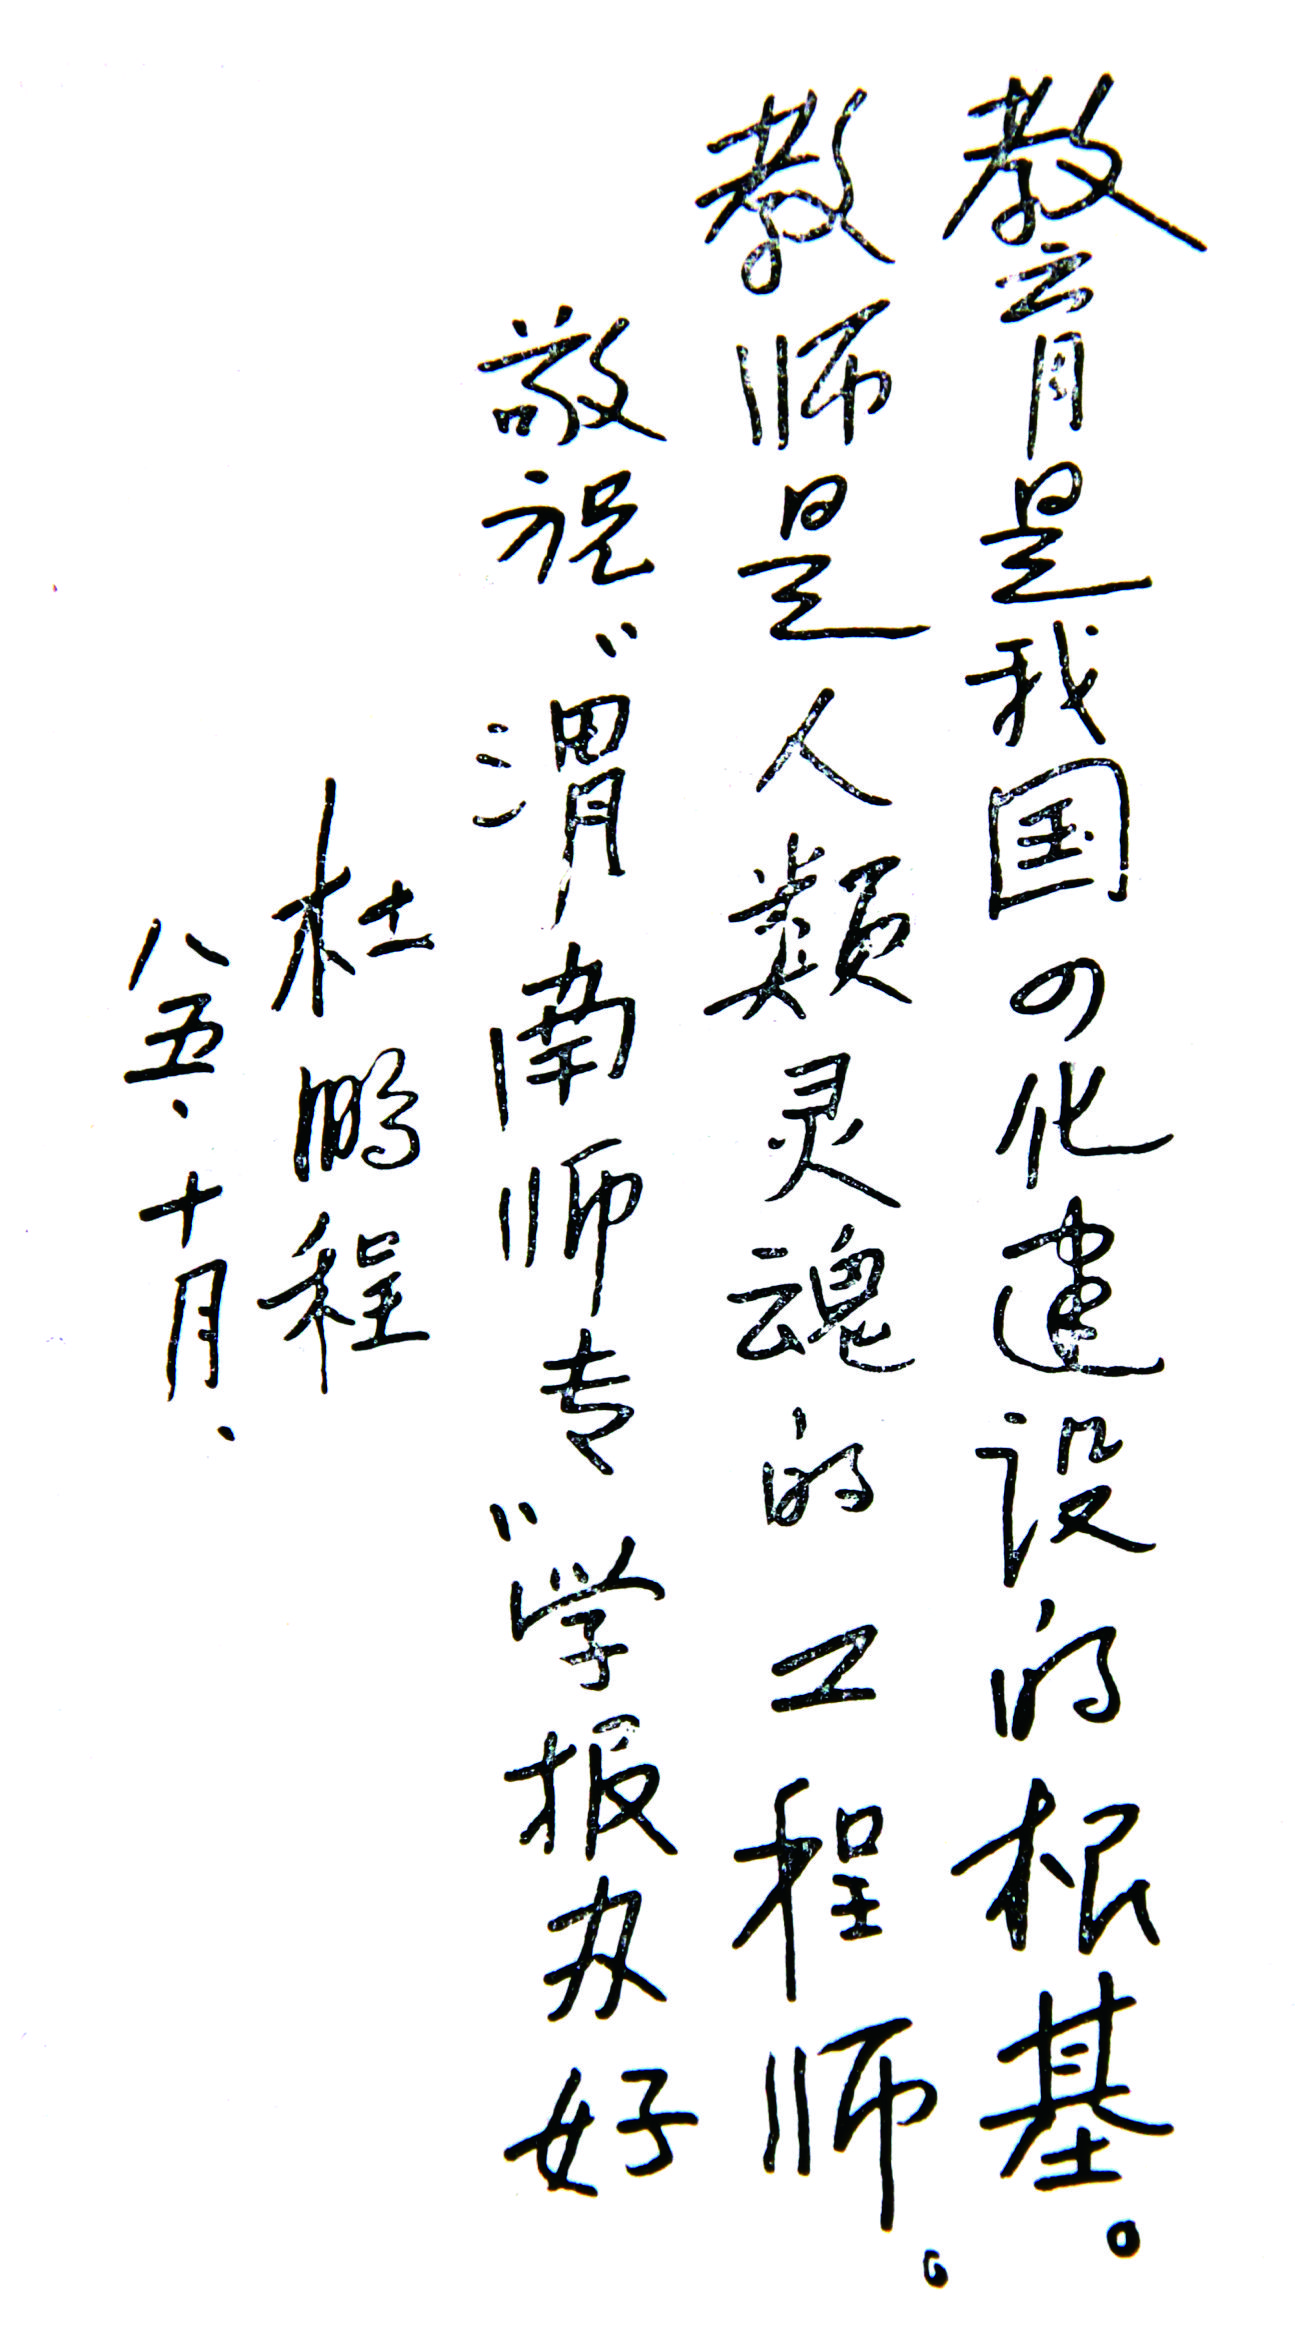 教育是我国四化建设的根基。
教师是人类灵魂的工程师。
敬祝“渭南师专”学报办好
杜鹏程
八五、十月、